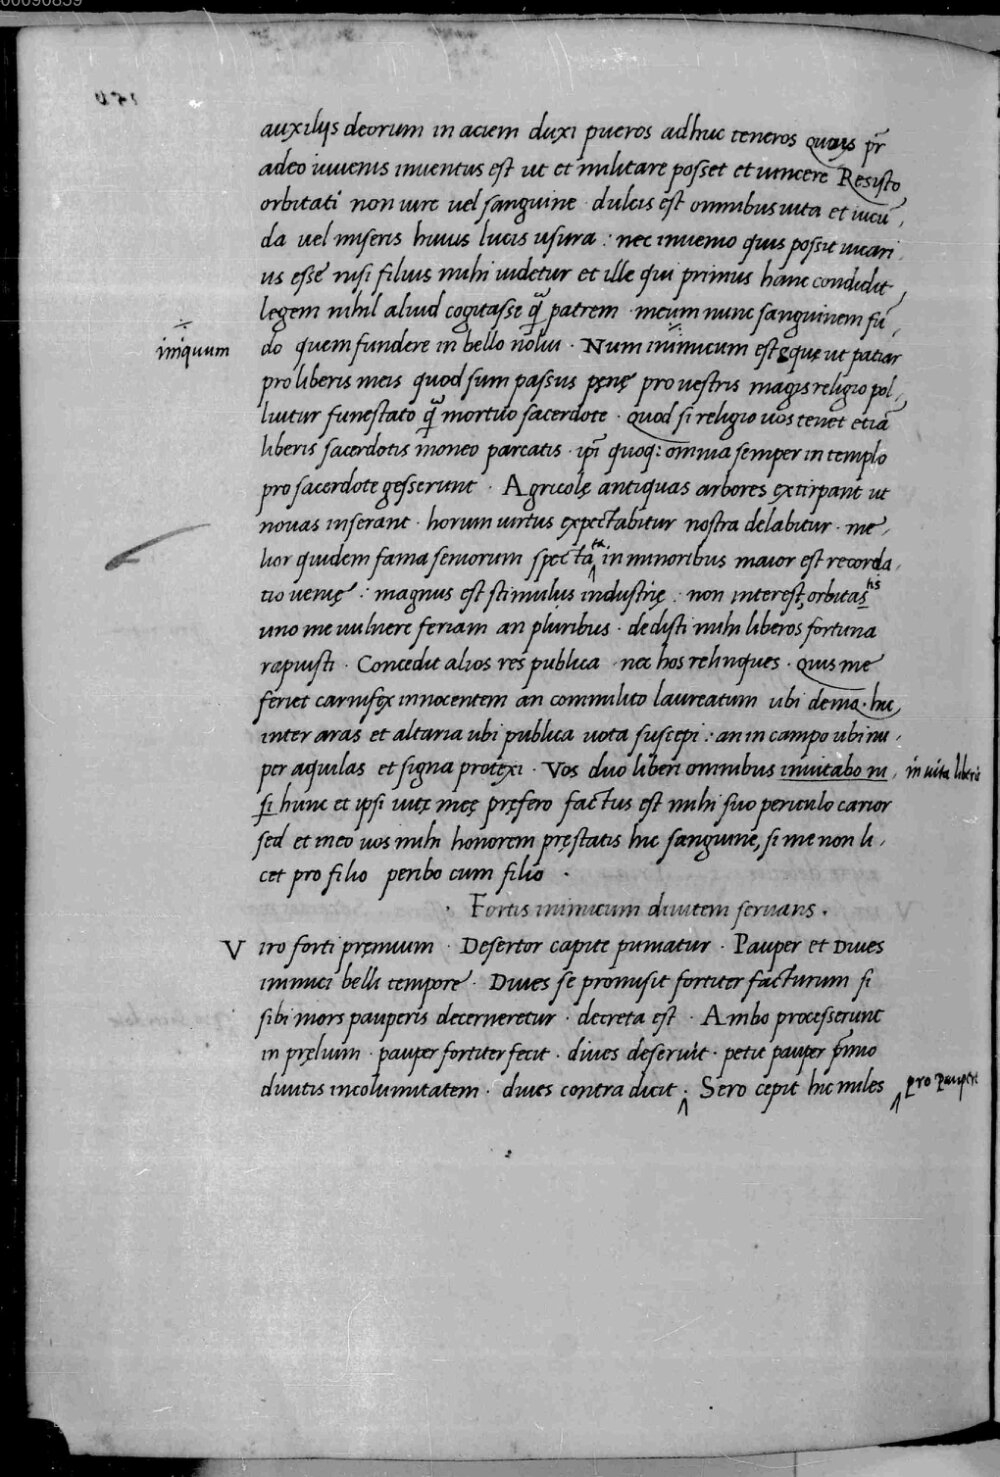 00090859
auxilijs deorum in aciem duxi pueros adhuc teneros quauis pr̄
adeo iuuenis inuentus est ut et militare posset et uincere Resisto
orbitati non iure uel sanguine · dulcis est omnibus uita et iucū,
da uel miseris huius lucis usura : nec inuenio quis possit uicari,
us esse nisi filius mihi uidetur et ille qui primus hanc condidit
legem nihil aliud cogitasse q̃ patrem · meum nunc sanguinem fū,
iniquum
do quem fundere in bello nolui · Num inimicum est eque ut patiar
pro liberis meis quod sum passus pęnę pro uestris magis religio pol,
luitur funestato q̃ mortuo sacerdote · quod si religio uos tenet etiā
liberis sacerdotis moneo parcatis · ip̄i quoq: omnia semper in templo
pro sacerdote gesserunt · Agricolę antiquas arbores extirpant ut
nouas inserant · horum uirtus expectabitur nostra delabitur · me,
lior quidem fama seniorum specta ta in minoribus maior est recorda,
tio uenię : magnus est stimulus industrię : non interest, orbitas hs
uno me uulnere feriam an pluribus · dedisti mihi liberos fortuna
rapuisti · Concedit alios res publica nec hos relinques · quis me
feriet carnifex innocentem an commilito laureatum ubi demā · hic
inter aras et altaria ubi publica uota suscepi : an in campo ubi nu,
per aquilas et signa protexi · Vos duo liberi omnibus inuitabo ni,
in uita liberis
si hunc et ipsi uitę meę pręfero factus est mihi suo periculo carior
sed et meo uos mihi honorem pręstatis hic sanguine, si me non li,
cet pro filio peribo cum filio ·
· Fortis inimicum diuitem seruans ·
Viro forti pręmium · Desertor capite puniatur · Pauper et Diues
inimici belli tempore · Diues se promisit fortiter facturum si
sibi mors pauperis decerneretur · decreta est · Ambo processerunt
in pręlium · pauper fortiter fecit · diues deseruit · petit pauper p̄mio
diuitis incolumitatem · diues contra dicit · Sero cepit hic miles
pro paupere